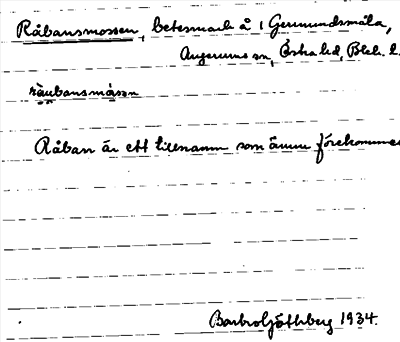 Råbansmossen, betesmark å 1 Germundsmåla,
Augerums sn, Östra hd, Blek. l.
råubansmåsen
Råban är ett tillnamn som ännu förekommer
Barbro Göthberg 1934.